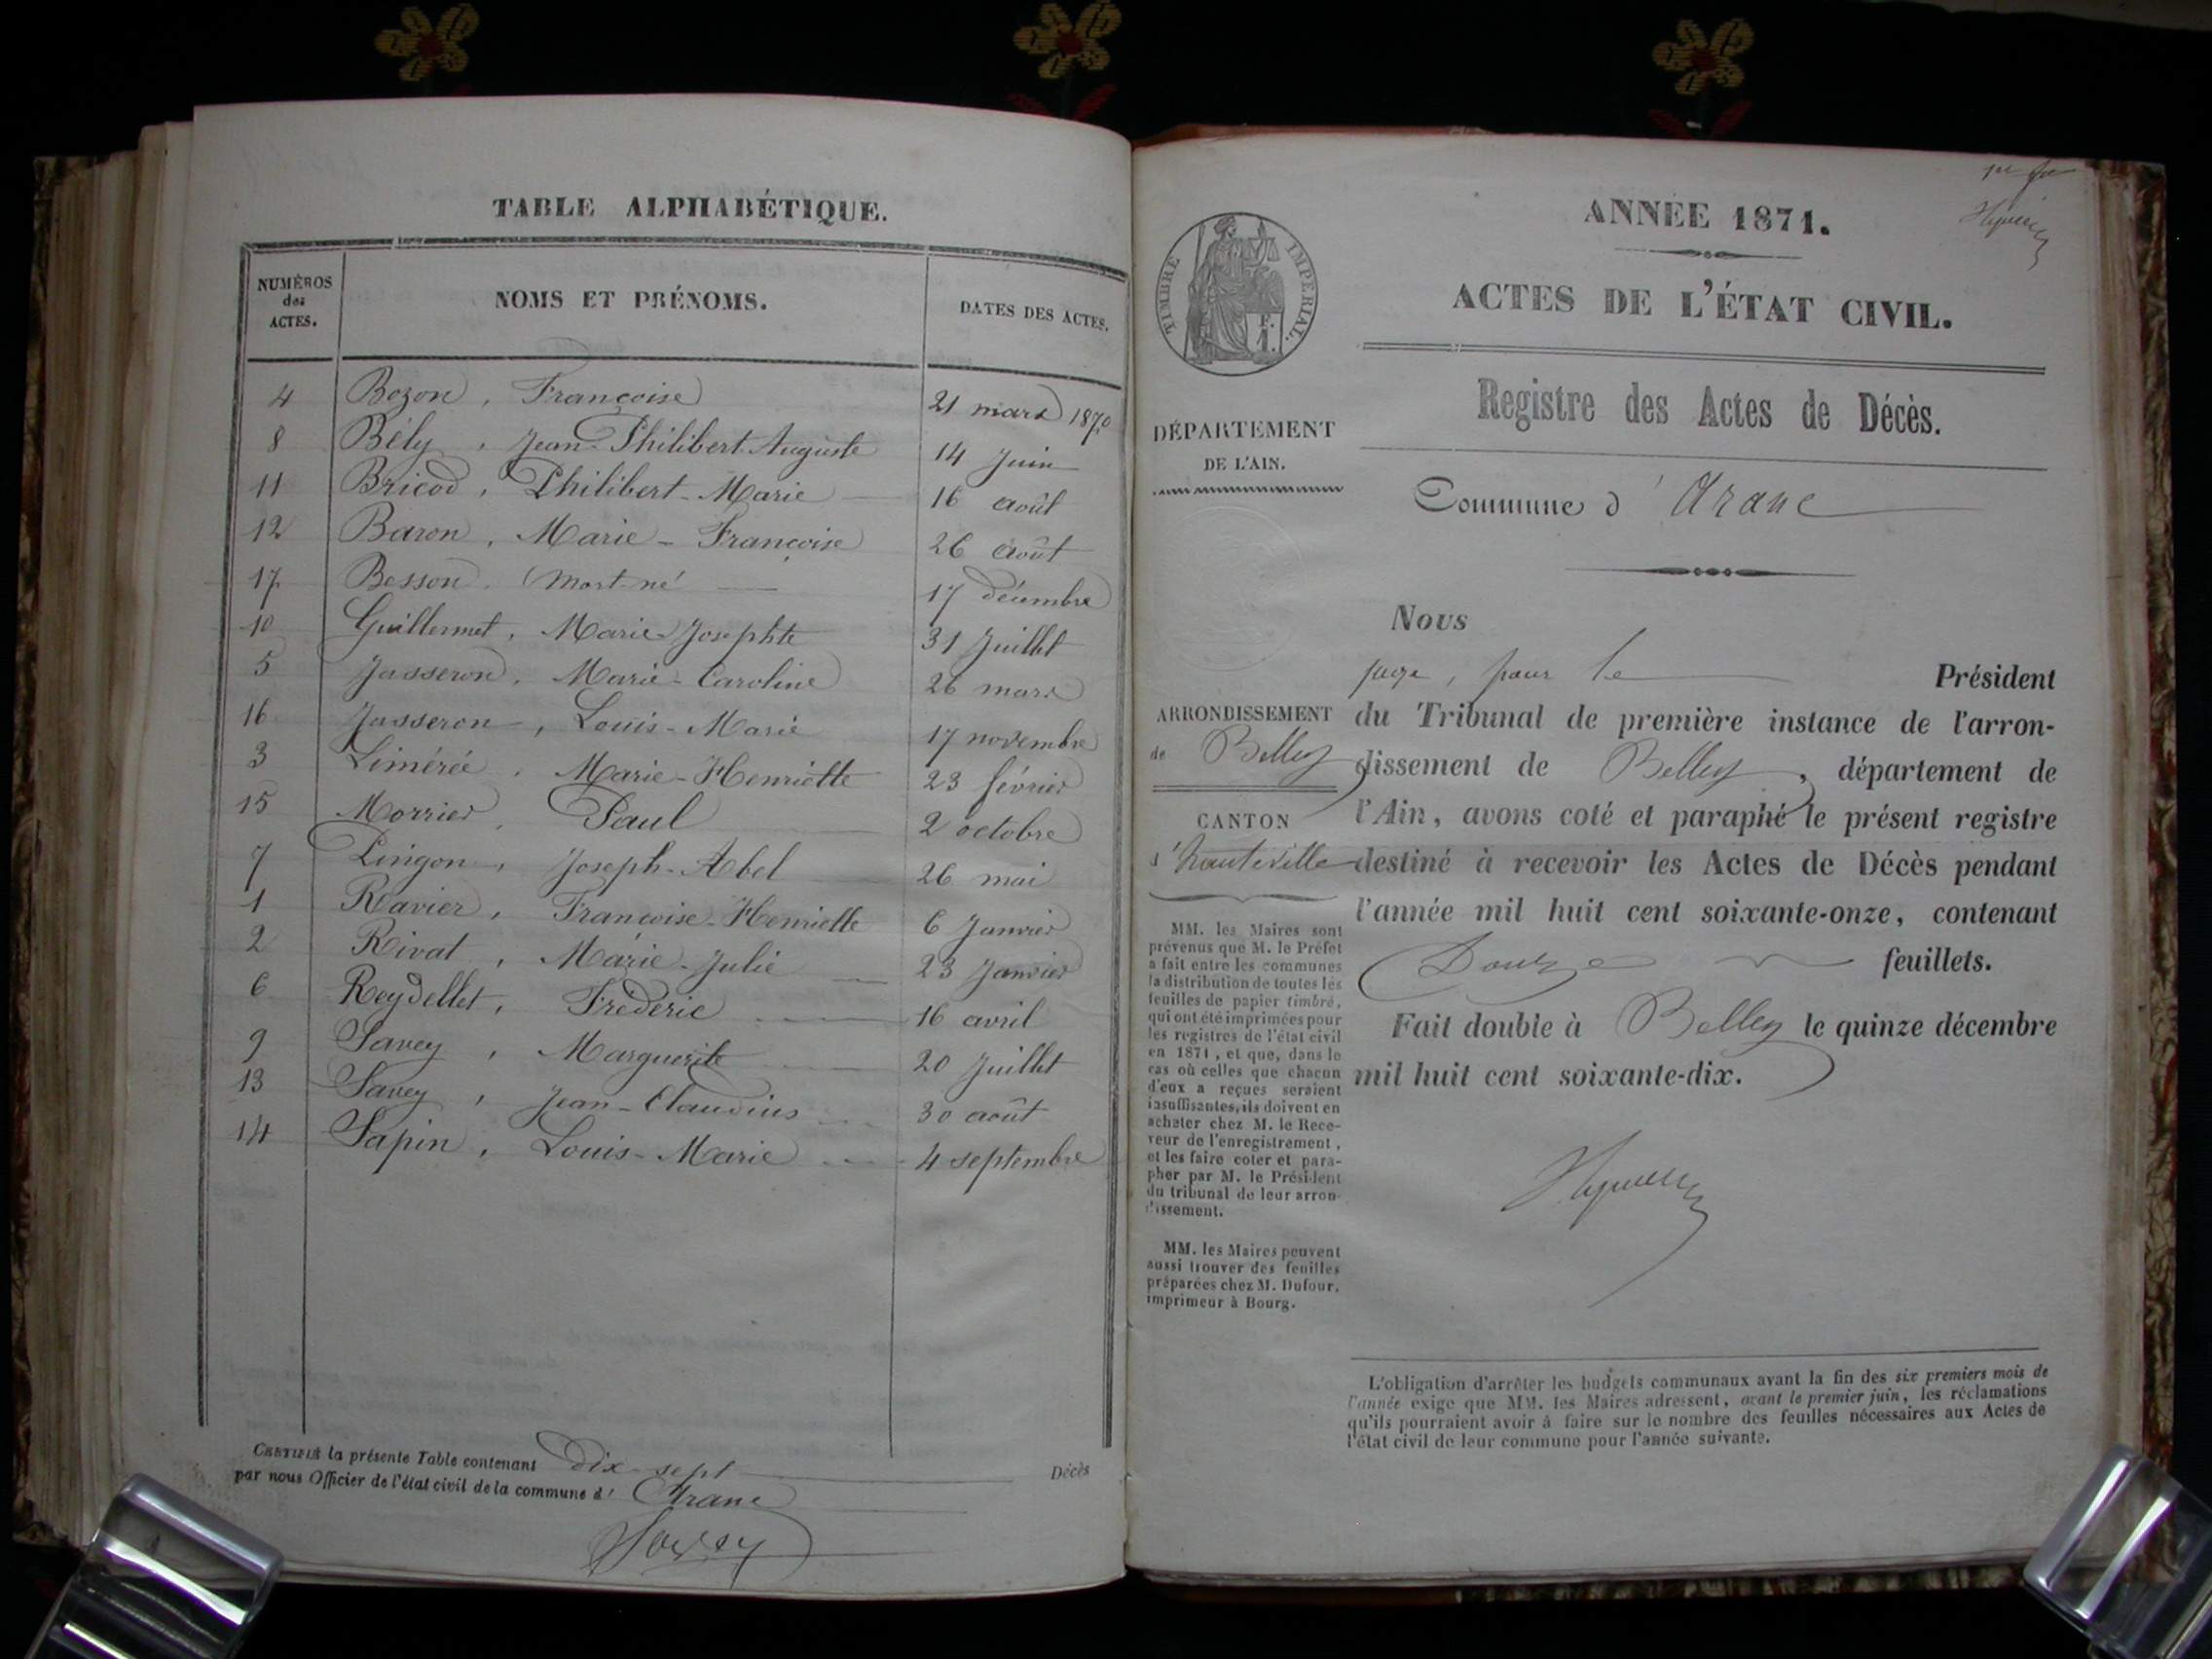 TABLE ALPHABÉTIQUE.
NUMÉROS
des
ACTES.
NOMS ET PRÉNOMS.
DATES DES ACTES.
4 Bozon, Françoise 21 mars 1870
8 Bély, Jean-Philibert-Auguste 14 Juin
11 Bricod, Philibert-Marie 16 août
12 Baron, Marie-Françoise 26 août
17 Besson, (mort-né 17 décembre
10 Guillermet, Marie-Josephte 31 Juillet
5 Jasseron, Marie-Caroline 26 mars
16 Jasseron, Louis-Marie 17 novembre
3 Limérée, Marie-Henriette 23 février
15 Morrier, Paul 2 octobre
7 Pingon, Joseph-Abel 26 mai
1 Ravier, Françoise-Henriette 6 Janvier
2 Rivat, Marie-Julie 23 Janvier
6 Reydellet, Frédéric 16 avril
9 Savey, Marguerite 20 Juillet
13 Savey, Jean-Claudius 30 août
14 Sapin, Louis-Marie 4 septembre
CERTIFIÉ la présente Table contenant dix-sept Décès
par nous Officier de l'état civil de la commune d' Aranc
Savey
ANNÉE 1871.
TIMBRE IMPÉRIAL.
F.
1.
ACTES DE L'ÉTAT CIVIL.
Registre des Actes de Décès.
DÉPARTEMENT
DE L'AIN.
Commune d'Aranc
Nous
juge, pour le Président
ARRONDISSEMENT
de Belley
CANTON
d'hauteville
du Tribunal de première instance de l'arron-
dissement de Belley, département de
l'Ain, avons coté et paraphé le présent registre
destiné à recevoir les Actes de Décès pendant
l'année mil huit cent soixante-onze, contenant
Douze feuillets.
Fait double à Belley le quinze décembre
mil huit cent soixante-dix.
MM. les Maires sont
prévenus que M. le Préfet
a fait entre les communes
la distribution de toutes les
feuilles de papier timbré,
qui ont été imprimées pour
les registres de l'état civil
en 1871, et que, dans le
cas où celles que chacun
d'eux a reçues seraient
insuffisantes, ils doivent en
acheter chez M. le Rece-
veur de l'enregistrement,
et les faire coter et para-
pher par M. le Président
du tribunal de leur arron-
dissement.
MM. les Maires peuvent
aussi trouver des feuilles
préparées chez M. Dufour,
imprimeur à Bourg.
L'obligation d'arrêter les budgets communaux avant la fin des six premiers mois de
l'année exige que MM. les Maires adressent, avant le premier juin, les réclamations
qu'ils pourraient avoir à faire sur le nombre des feuilles nécessaires aux Actes de
l'état civil de leur commune pour l'année suivante.